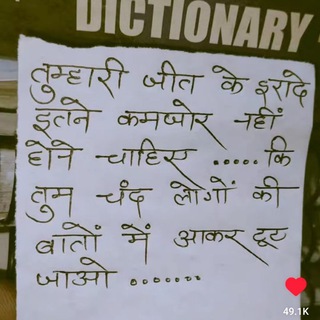 DICTIONARY
तुम्हारी जीत के इरादे
इतने कमजोर नहीं
होने चाहिए ..... कि
तुम चंद लोगों की
बातों में आकर टूट
जाओ .......
49.1K